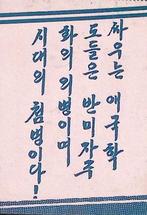 싸우는 애국학
도들은 반미자주
화의 의병이며
시대의 첨병이다!